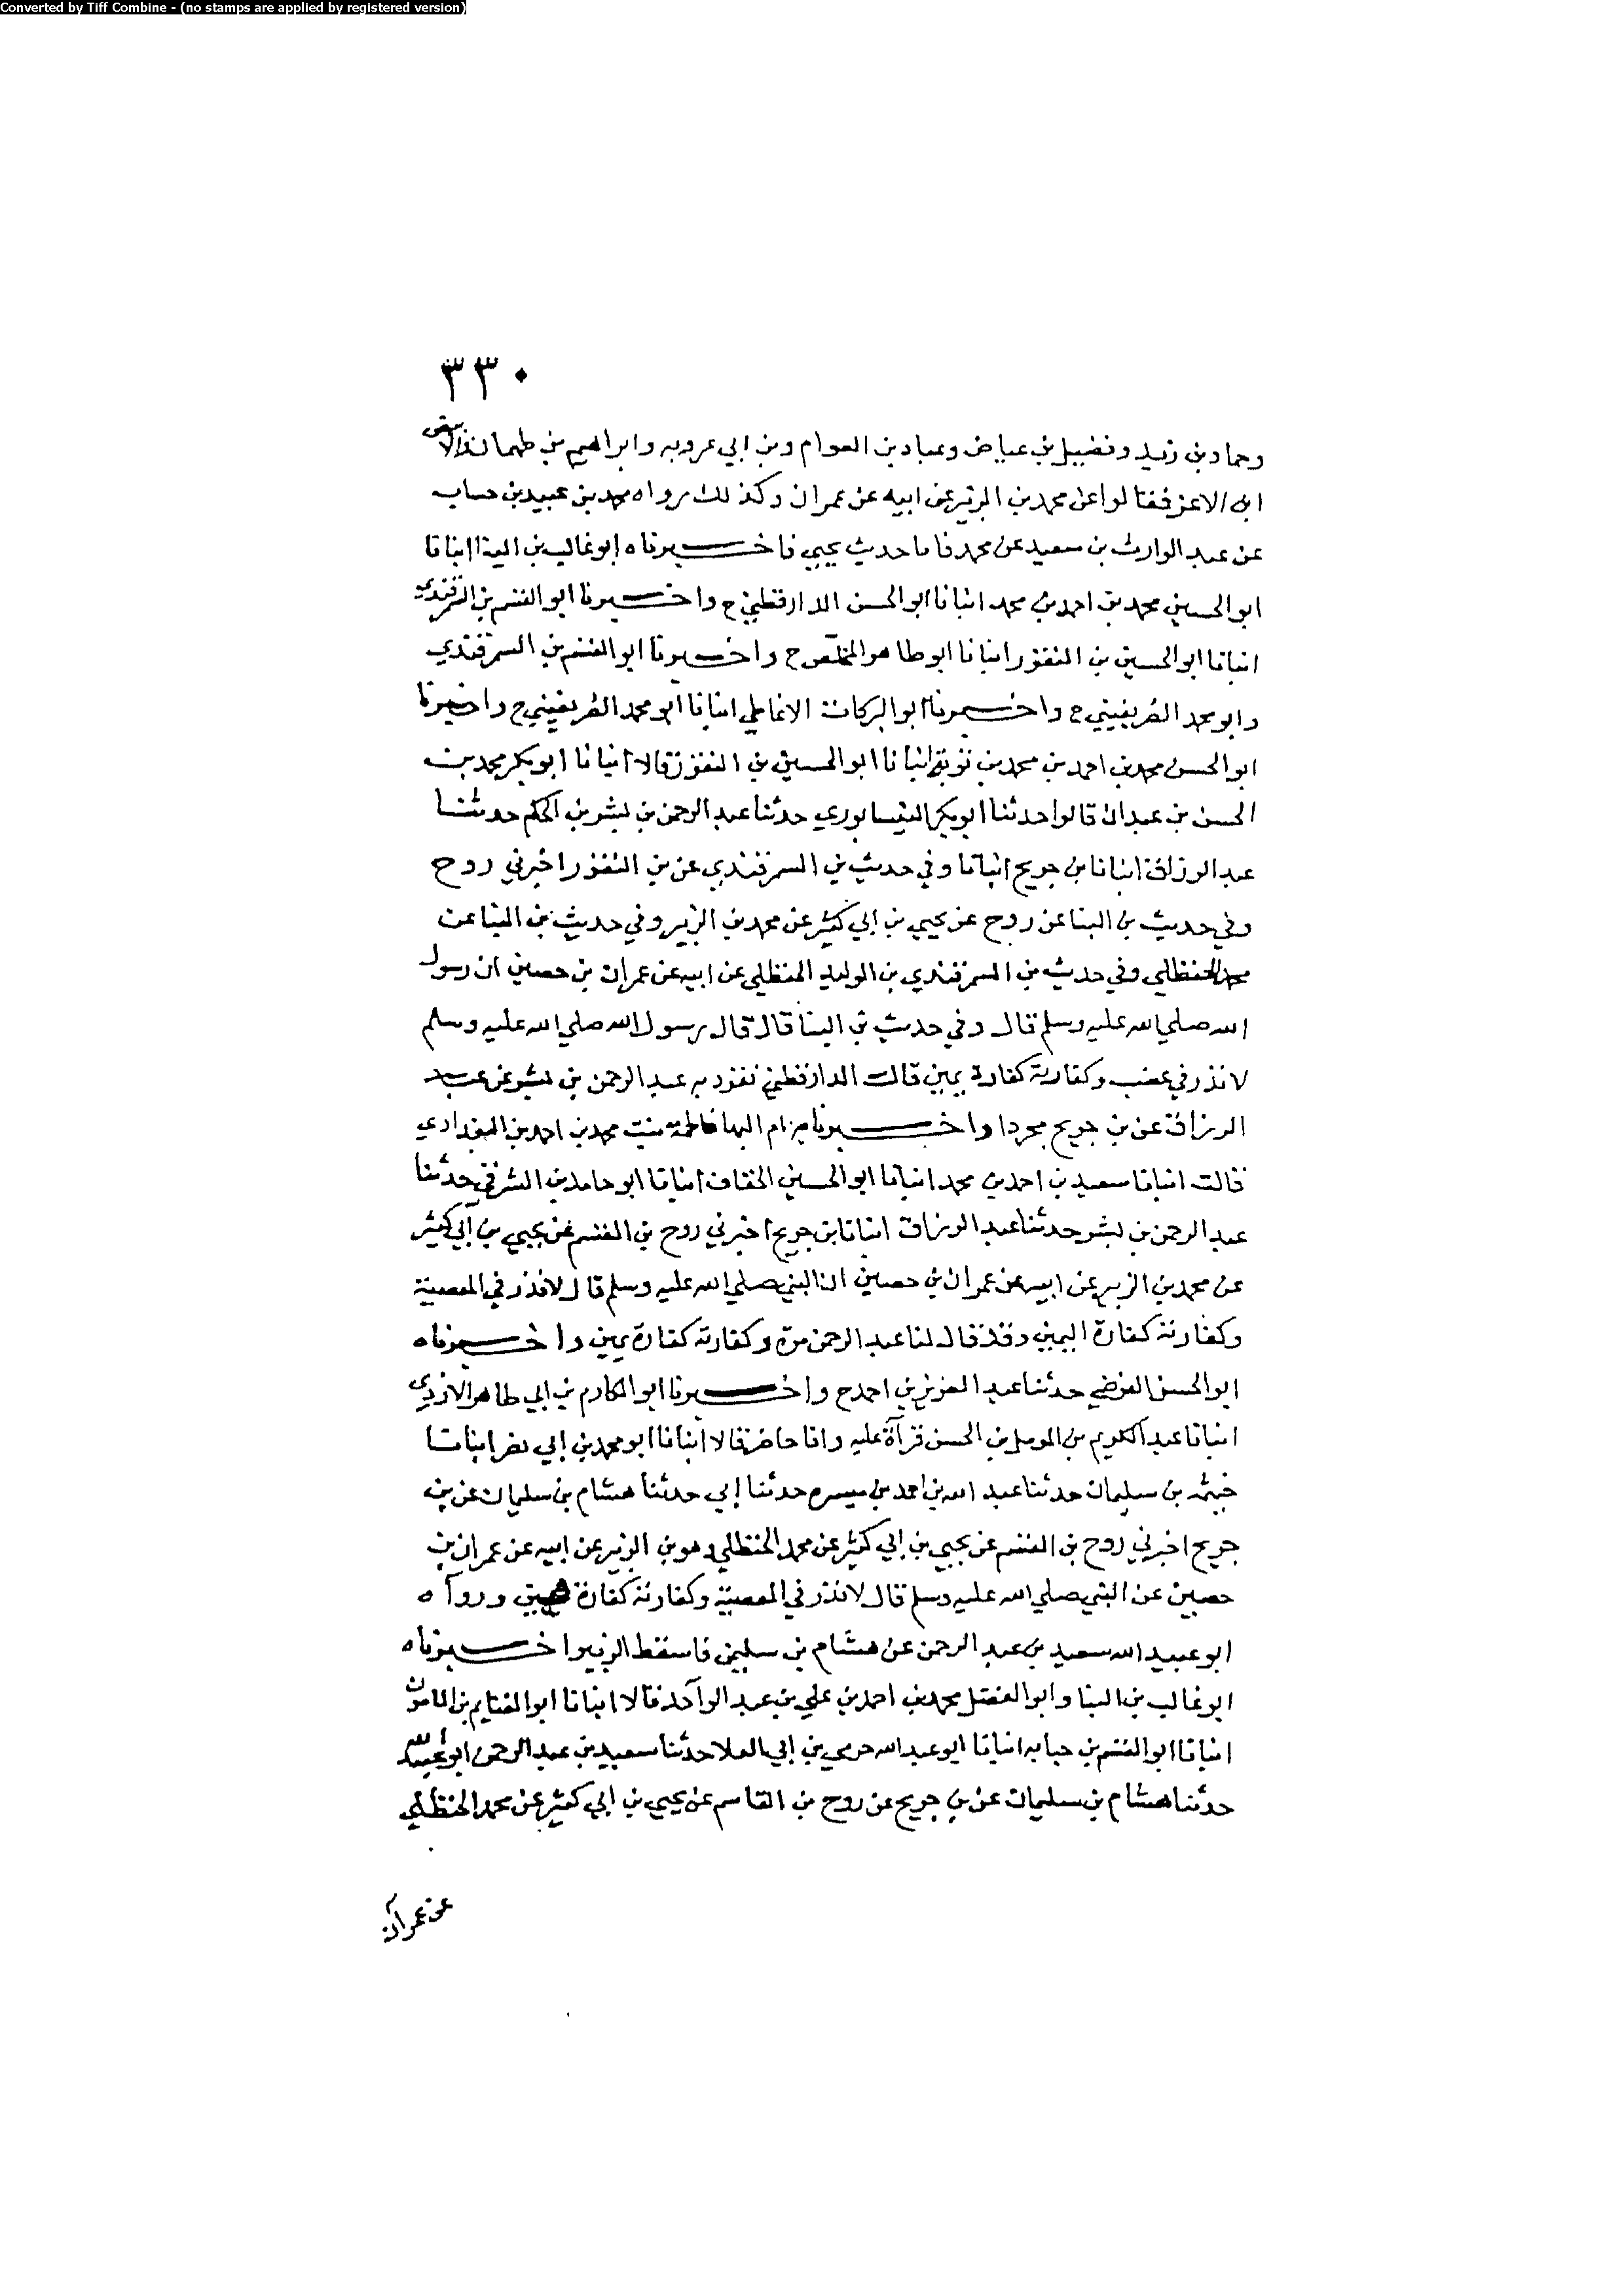 Converted by Tiff Combine - (no stamps are applied by registered version)
٣٣٠
وحماد بن زيد وفضيل بن عياض وعباد بن العوام وبن ابي عروبه وابراهيم بن طهمان
ابن الاعز فقالوا عن محمد بن الزبير عن ابيه عن عمران وكذلك رواه محمد بن عبيد بن حساب
عن عبد الوارث بن سعيد عن محمد فاما حديث يحيى فاخبرناه ابو غالب بن البنا انبانا
ابو الحسين محمد بن احمد بن محمد انبانا ابو الحسن الدارقطني ح واخبرنا ابو القسم بن السمرقندي
انبانا ابو الحسين بن النقور انبانا ابو طاهر المخلص ح واخبرنا ابو القسم بن السمرقندي
وابو محمد الصريفيني ح واخبرنا ابو البركات الانماطي انبانا ابو محمد الصريفيني ح واخبرنا
ابو الحسن محمد بن احمد بن محمد بن توبة انبانا ابو الحسين بن النقور قالا انبانا ابو بكر محمد بن
الحسن بن عبدان قالوا حدثنا ابو بكر النيسابوري حدثنا عبد الرحمن بن بشر بن الحكم حدثنا
عبد الرزاق انبانا بن جريج انبانا وفي حديث بن السمرقندي عن بن النقور اخبرني روح
وفي حديث بن البنا عن روح عن يحيى بن ابي كثير عن محمد بن الزبير وفي حديث بن البنا عن
محمد الحنظلي وفي حديث بن السمرقندي بن الوليد الحنظلي عن ابيه عن عمران بن حصين ان رسول
الله صلي الله عليه وسلم قال وفي حديث بن البنا قال قال رسول الله صلي الله عليه وسلم
لا نذر في غضب وكفارته كفارة يمين قالت الدارقطني تفرد به عبد الرحمن بن بشر عن عبد
الرزاق عن بن جريج مجردا واخبرنا ام البها فاطمة بنت محمد بن احمد بن البغدادي
قالت انبانا سعيد بن احمد بن محمد انبانا ابو الحسين الخفاف انبانا ابو حامد بن الشرقي حدثنا
عبد الرحمن بن بشر حدثنا عبد الرزاق انبانا بن جريج اخبرني روح بن القسم عن يحيى بن ابي كثير
عن محمد بن الزبير عن ابيه عن عمران بن حصين ان النبي صلي الله عليه وسلم قال لا نذر في المعصية
وكفارته كفارة اليمين وقد قال لنا عبد الرحمن مرة وكفارته كفارة يمين واخبرناه
ابو الحسن الفرضي حدثنا عبد العزيز بن احمد ح واخبرنا ابو المكارم بن ابي طاهر الازدي
انبانا عبد الكريم بن المومل بن الحسن قرآة عليه وانا حاضر قالا انبانا ابو محمد بن ابي نصر انبانا
خيثمة بن سليمان حدثنا عبد الله بن احمد بن ميسره حدثنا ابي حدثنا هشام بن سليمان عن بن
جريج اخبرني روح بن القسم عن يحيى بن ابي كثير عن محمد الحنظلي وهو بن الزبير عن ابيه عن عمران بن
حصين عن النبي صلي الله عليه وسلم قال لا نذر في المعصية وكفارته كفارة يمين ورواه
ابو عبيد الله سعيد بن عبد الرحمن عن هشام بن سليمن فاسقط الزبير اخبرناه
ابو غالب بن البنا وابو الفضل محمد بن احمد بن علي بن عبد الواحد قالا انبانا ابو الغنايم بن المامون
انبانا ابو القسم بن حبابه انبانا ابو عبد الله حرمي بن ابي العلا حدثنا سعيد بن عبد الرحمن ابو عبيد الله
حدثنا هشام بن سليمان عن بن جريج عن روح بن القاسم عن يحيى بن ابي كثير عن محمد الحنظلي
عن عمران